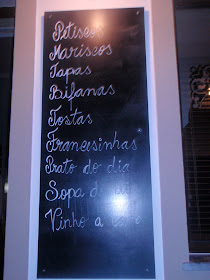 Petiscos
Mariscos
Tapas
Bifanas
Tostas
Francesinhas
Prato do dia
Sopa d
Vinho a